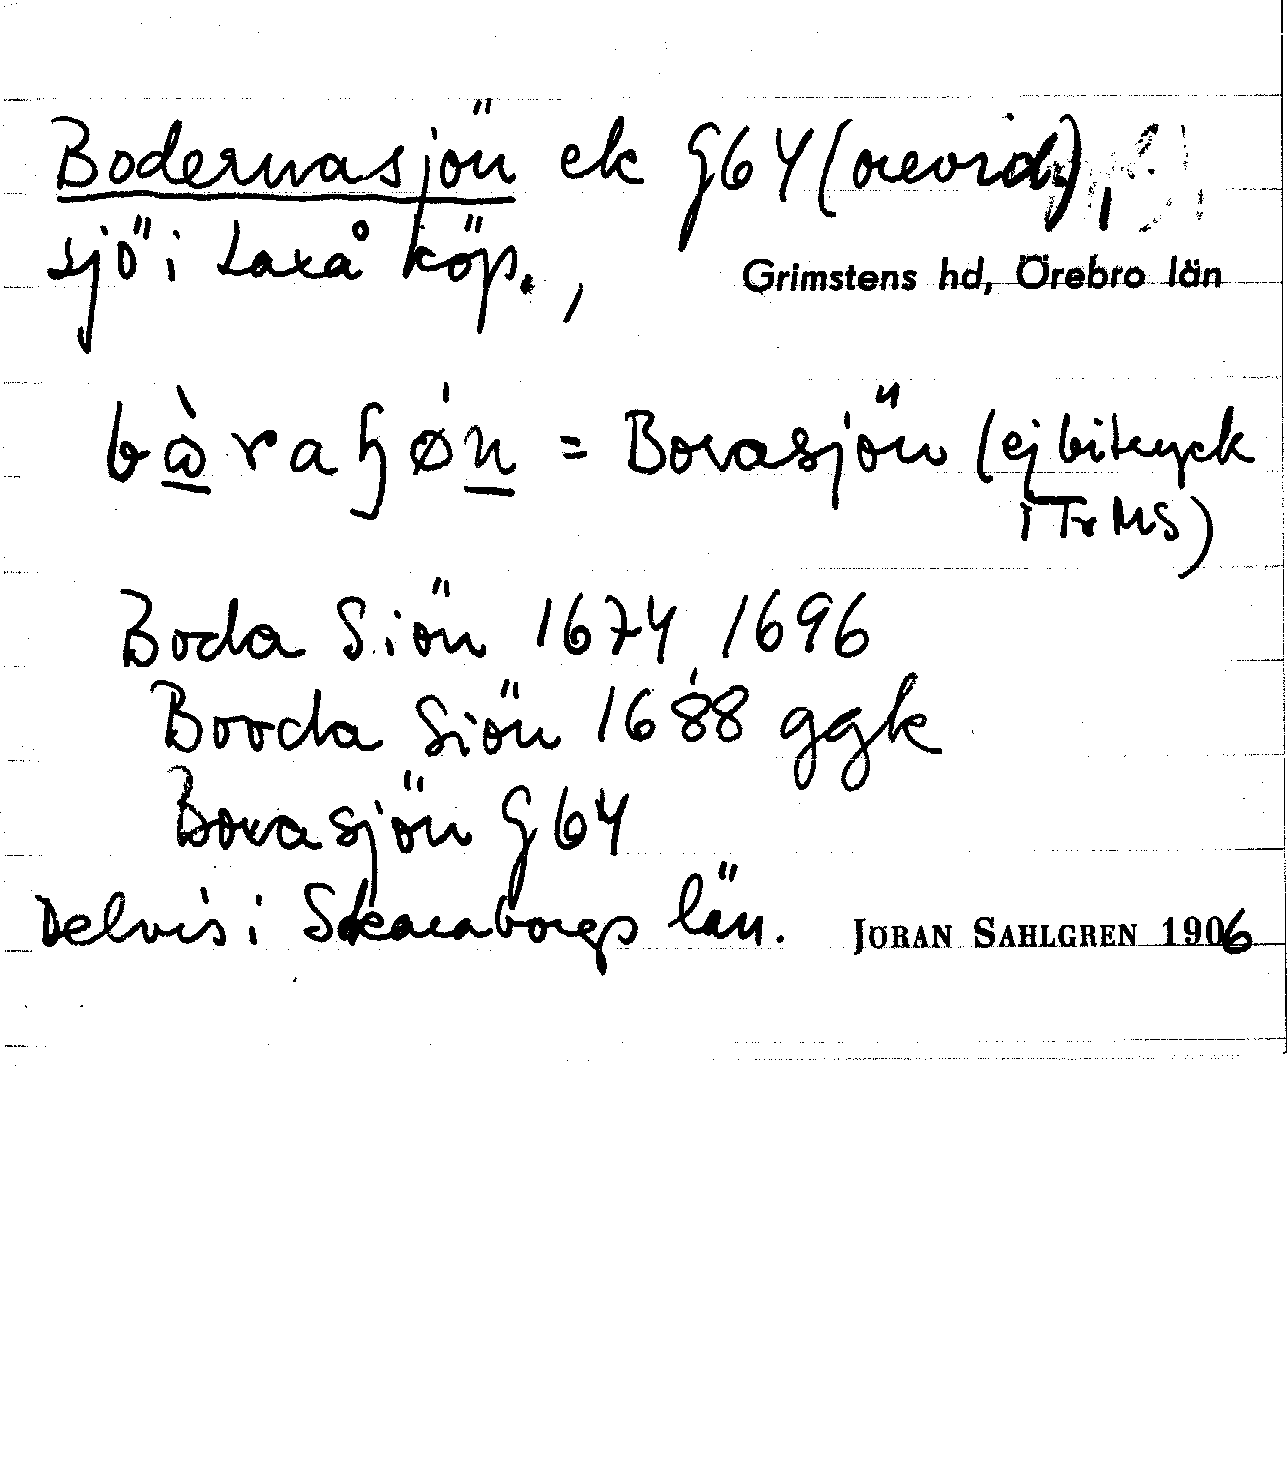 Bodernasjön ek G64 (orevid),
sjö i Laxå köp.,
Grimstens hd, Örebro län
bàraɧøn = Borasjön (ej bitryck
i Tr MS)
Boda Siön 1674, 1696
Booda Siön 1688 ggk
Borasjön G64
Delvis i Skaraborgs län.
JÖRAN SAHLGREN 1906